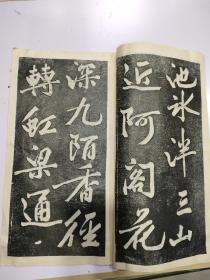 池冰泮三山
近阿阁花
深九陌香径
转虹梁通